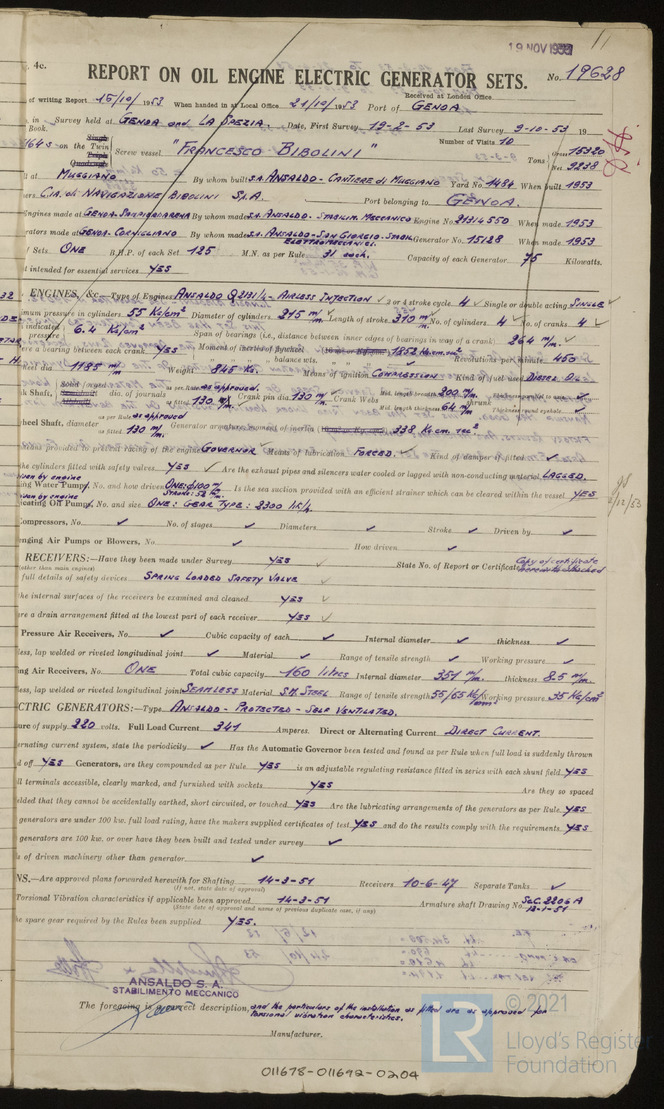 19 NOV 1953
4c.
REPORT ON OIL ENGINE ELECTRIC GENERATOR SETS.
No. 19628
Received at London Office
of writing Report 15/10/1953 When handed in at Local Office 21/10/1953 Port of GENOA
in Survey held at GENOA and LA SPEZIA. Date, First Survey 19-2-53 Last Survey 9-10-53 19
Book. Number of Visits 10
on the Twin Screw vessel "FRANCESCO BIBOLINI" Tons Gross 15320
Net 9238
at MUGGIANO By whom built S.A. ANSALDO - CANTIERE di MUGGIANO Yard No. 1484 When built 1953
ers C.ia. di NAVIGAZIONE BIBOLINI S.p.A. Port belonging to GENOA.
Engines made at GENOA SAMPIERDARENA By whom made S.A. ANSALDO - STABILIM. MECCANICO Engine No. 21314550 When made 1953
rators made at GENOA-CORNIGLIANO By whom made S.A. ANSALDO-SAN GIORGIO-STABIL ELETTROMECCANICI. Generator No. 15128 When made 1953
Sets ONE B.H.P. of each Set 125 M.N. as per Rule 31 each. Capacity of each Generator 75 Kilowatts.
intended for essential services YES
ENGINES, &c.—Type of Engines ANSALDO Q 2131/4 - AIRLESS INJECTION 2 or 4 stroke cycle 4 Single or double acting SINGLE
mum pressure in cylinders 55 Kg/cm² Diameter of cylinders 215 m/m Length of stroke 310 m/m No. of cylinders 4 No. of cranks 4
indicated pressure 6.4 Kg/cm² Span of bearings (i.e., distance between inner edges of bearings in way of a crank) 264 m/m.
re a bearing between each crank YES Moment of inertia of flywheel 1852 Kg.cm.sec² Revolutions per minute 450
eel dia 1185 m/m Weight 845 Kg. Means of ignition COMPRESSION Kind of fuel used DIESEL OIL
k Shaft, dia. of journals as per Rule as approved. as fitted 130 m/m Crank pin dia. 130 m/m Crank Webs Mid. length breadth 200 m/m
Mid. length thickness 64 m/m
wheel Shaft, diameter as per Rule as approved as fitted 130 m/m. Generator armature, moment of inertia 338 Kg.cm sec²
eans provided to prevent racing of the engine GOVERNOR Means of lubrication FORCED Kind of damper if fitted
he cylinders fitted with safety valves YES Are the exhaust pipes and silencers water cooled or lagged with non-conducting material LAGGED.
driven by engine
ing Water Pumps, No. and how driven ONE: φ 100 m/m Stroke: 52 m/m. Is the sea suction provided with an efficient strainer which can be cleared within the vessel YES
driven by engine
icating Oil Pumps, No. and size ONE: GEAR TYPE: 2300 lt/h
Compressors, No. No. of stages Diameters Stroke Driven by
enging Air Pumps or Blowers, No How driven
RECEIVERS:—Have they been made under Survey YES State No. of Report or Certificate Copy of certificate herewith attached
(other than main engines)
full details of safety devices SPRING LOADED SAFETY VALVE
he internal surfaces of the receivers be examined and cleaned YES
ere a drain arrangement fitted at the lowest part of each receiver YES
Pressure Air Receivers, No. Cubic capacity of each Internal diameter thickness
ess, lap welded or riveted longitudinal joint Material Range of tensile strength Working pressure
ng Air Receivers, No. ONE Total cubic capacity 160 litres Internal diameter 351 m/m thickness 8.5 m/m.
ess, lap welded or riveted longitudinal joint SEAMLESS Material S.M. STEEL Range of tensile strength 55/65 Kg/mm² Working pressure 35 Kg/cm²
CTRIC GENERATORS:—Type ANSALDO - PROTECTED - SELF VENTILATED.
ure of supply 220 volts. Full Load Current 341 Amperes. Direct or Alternating Current DIRECT CURRENT.
ernating current system, state the periodicity Has the Automatic Governor been tested and found as per Rule when full load is suddenly thrown
d off YES Generators, are they compounded as per Rule YES is an adjustable regulating resistance fitted in series with each shunt field YES
ll terminals accessible, clearly marked, and furnished with sockets YES Are they so spaced
elded that they cannot be accidentally earthed, short circuited, or touched YES Are the lubricating arrangements of the generators as per Rule YES
generators are under 100 kw. full load rating, have the makers supplied certificates of test YES and do the results comply with the requirements YES
generators are 100 kw. or over have they been built and tested under survey
s of driven machinery other than generator
NS.—Are approved plans forwarded herewith for Shafting 14-3-51 Receivers 10-6-47 Separate Tanks
(If not, state date of approval)
Torsional Vibration characteristics if applicable been approved 14-3-51 Armature shaft Drawing No. SGC. 2206 A
(State date of approval and name of previous duplicate case, if any) 12-1-51
he spare gear required by the Rules been supplied YES.
ANSALDO S. A.
STABILIMENTO MECCANICO
The foregoing is a correct description, and the particulars of the installation as fitted are as approved for torsional vibration characteristics.
Manufacturer.
LR © 2021
Lloyd's Register
Foundation
011678-011692-0204